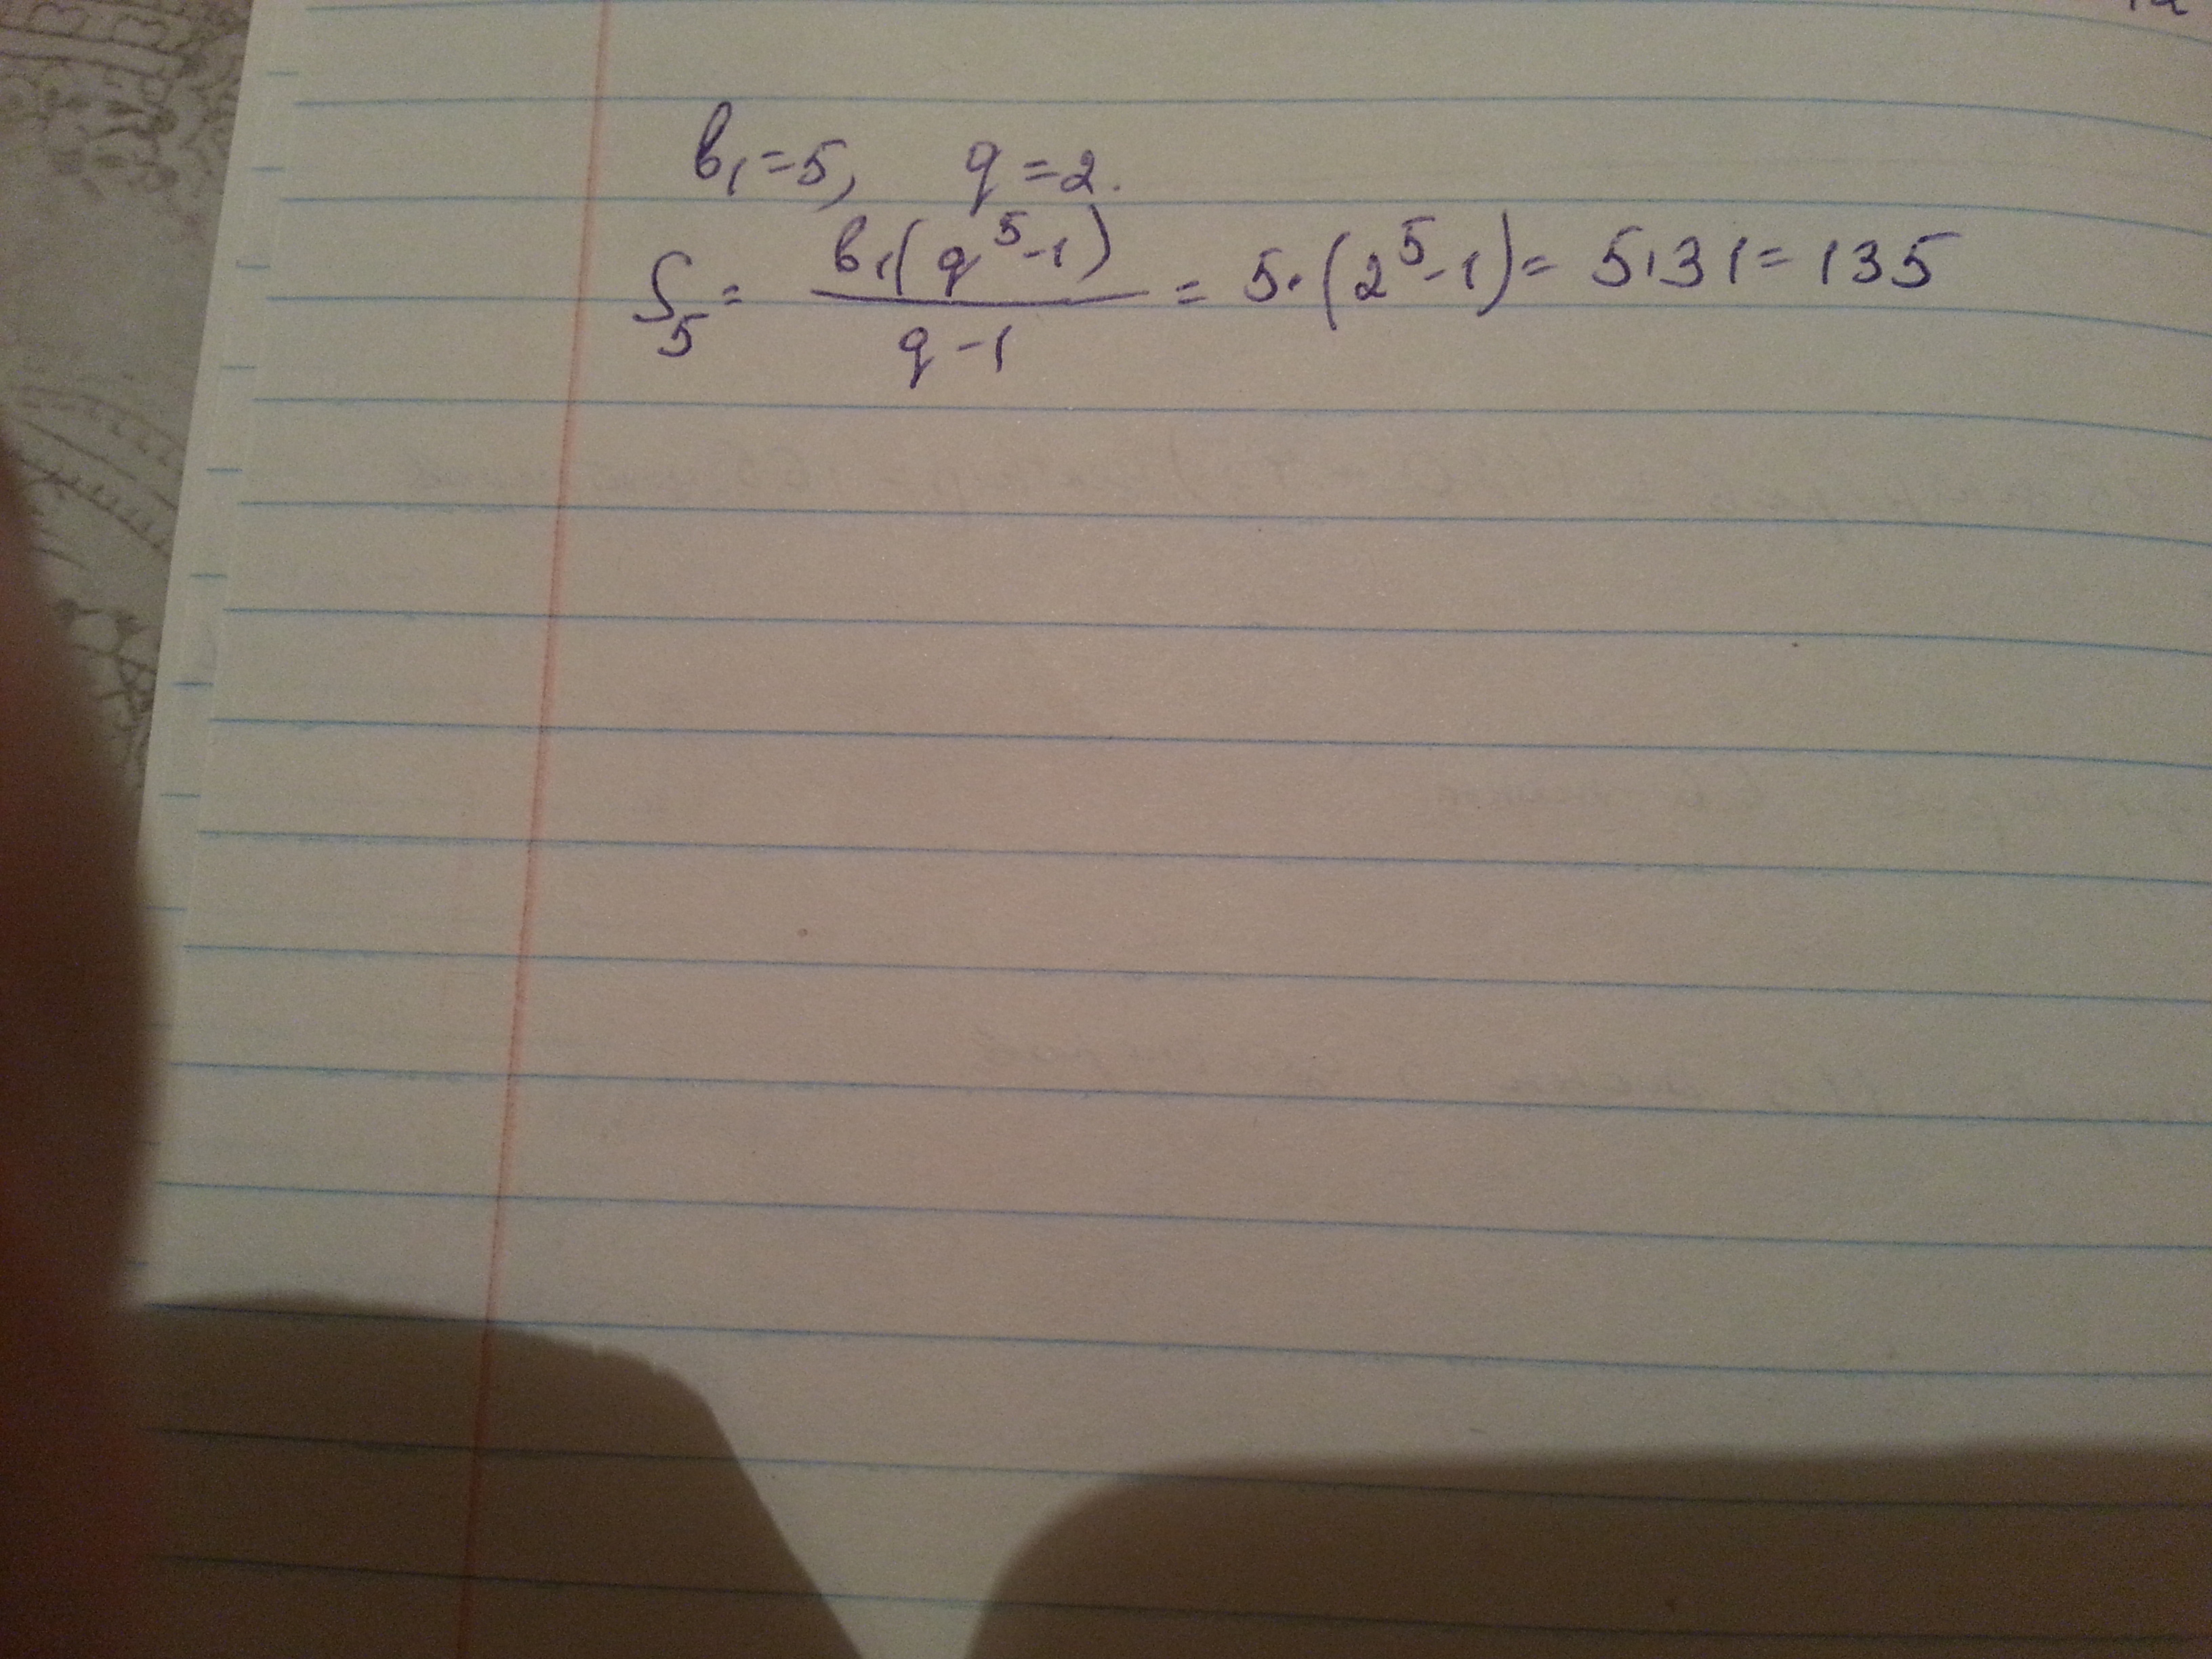 b₁=5, q=2.
S₅ = b₁(q⁵-1) / q-1 = 5·(2⁵-1)= 5·31= 135